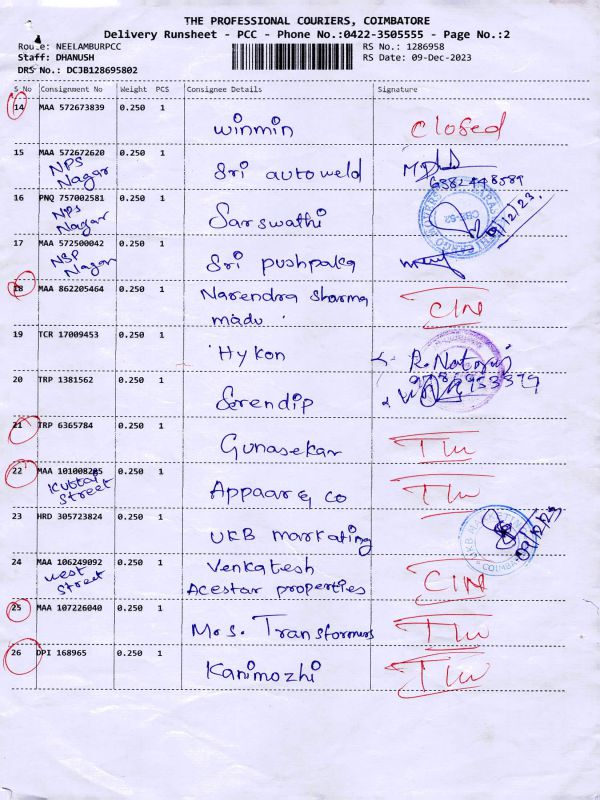 THE PROFESSIONAL COURIERS, COIMBATORE
Delivery Runsheet - PCC - Phone No.:0422-3505555 - Page No.:2
Route: NEELAMBURPCC RS No.: 1286958
Staff: DHANUSH RS Date: 09-Dec-2023
DRS No.: DCJB128695802
S No Consignment No Weight PCS Consignee Details Signature
14 MAA 572673839 0.250 1
winmin closed
15 MAA 572672620 0.250 1
NPS Nagar Sri autoweld
6382448589
16 PNQ 757002581 0.250 1
NPS Nagar Sarswathi
09/12/23
17 MAA 572500042 0.250 1
NSP Nagar Sri pushpaka
18 MAA 862205464 0.250 1 Narendra sharma
madu CIN
19 TCR 17009453 0.250 1
Hykon R. Natoraj
20 TRP 1381562 0.250 1
Serendip
21 TRP 6365784 0.250 1
Gunasekar
22 MAA 101008205 0.250 1
street Appaar & co
23 HRD 305723824 0.250 1
UKB markating 09/12/23
24 MAA 106249092 0.250 1 Venkatesh
west street Acestar properties CIN
25 MAA 107226040 0.250 1
Mrs. Transformers
26 DPI 168965 0.250 1
Kanimozhi